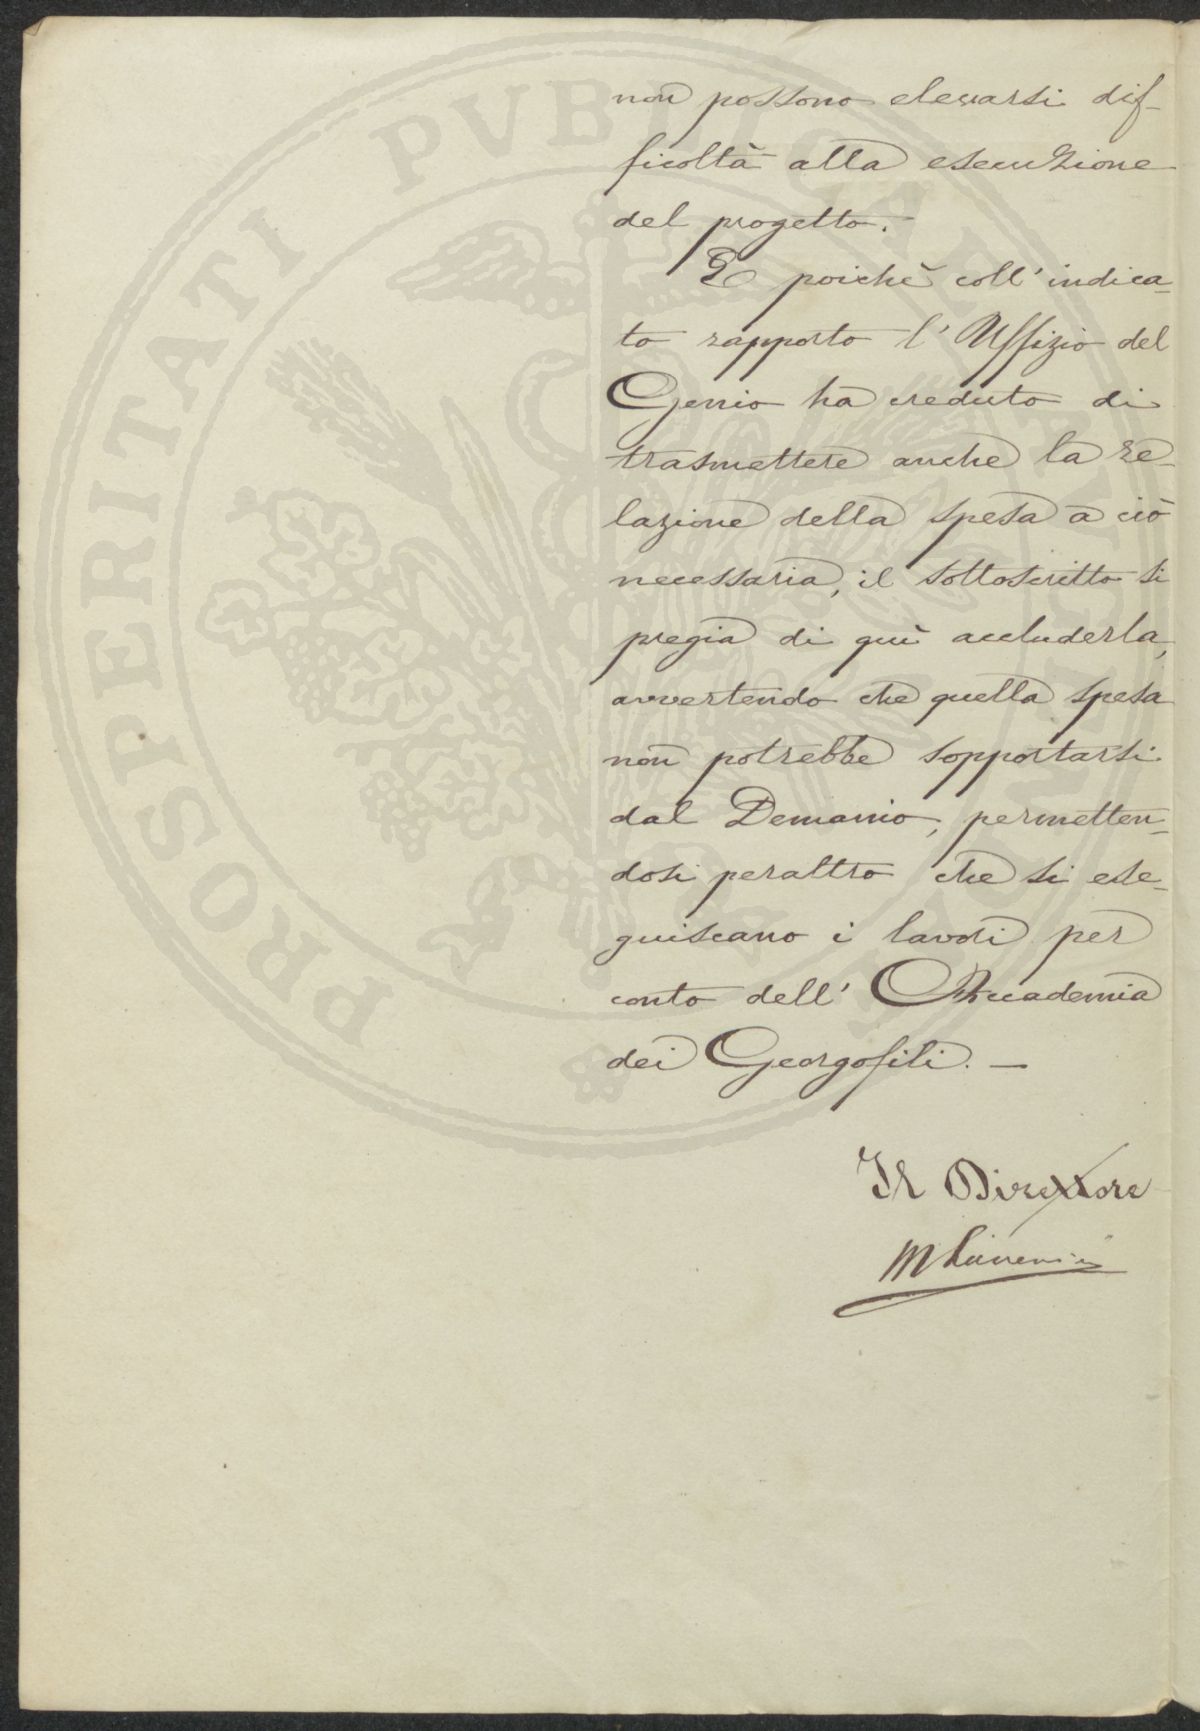 non possono elevarsi dif-
ficoltà alla esecuzione
del progetto.
E poichè coll' indica-
to rapporto l' Uffizio del
Genio ha creduto di
trasmettere anche la re-
lazione della spesa a ciò
necessaria, il sottoscritto si
pregia di quì accluderla,
avvertendo che quella spesa
non potrebbe sopportarsi
dal Demanio, permetten-
dosi peraltro che si ese-
guiscano i lavori per
conto dell' Accademia
dei Georgofili. —
Il Direttore
PROSPERITATI PVBLICAE